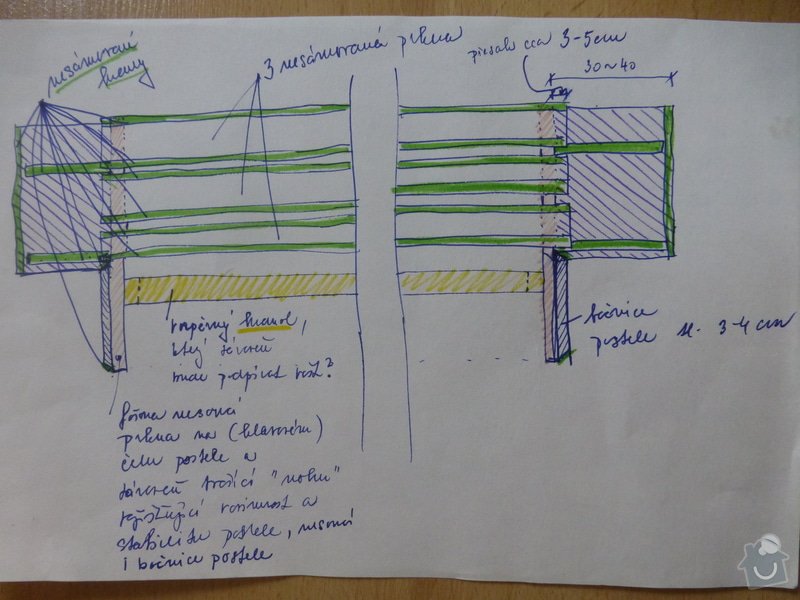 nesámované
hrany
3 nesámovaná prkna
přesah cca 3-5cm
30~40
rozpěrný hranol,
který zároveň
bude podpírat rošt?
bočnice
postele tl. 3-4 cm
fošna nesoucí
prkna na (hlavovém)
čelu postele a
zároveň tvořící "nohu"
zajišťující rovinnost a
stabilitu postele, nesoucí
i bočnice postele